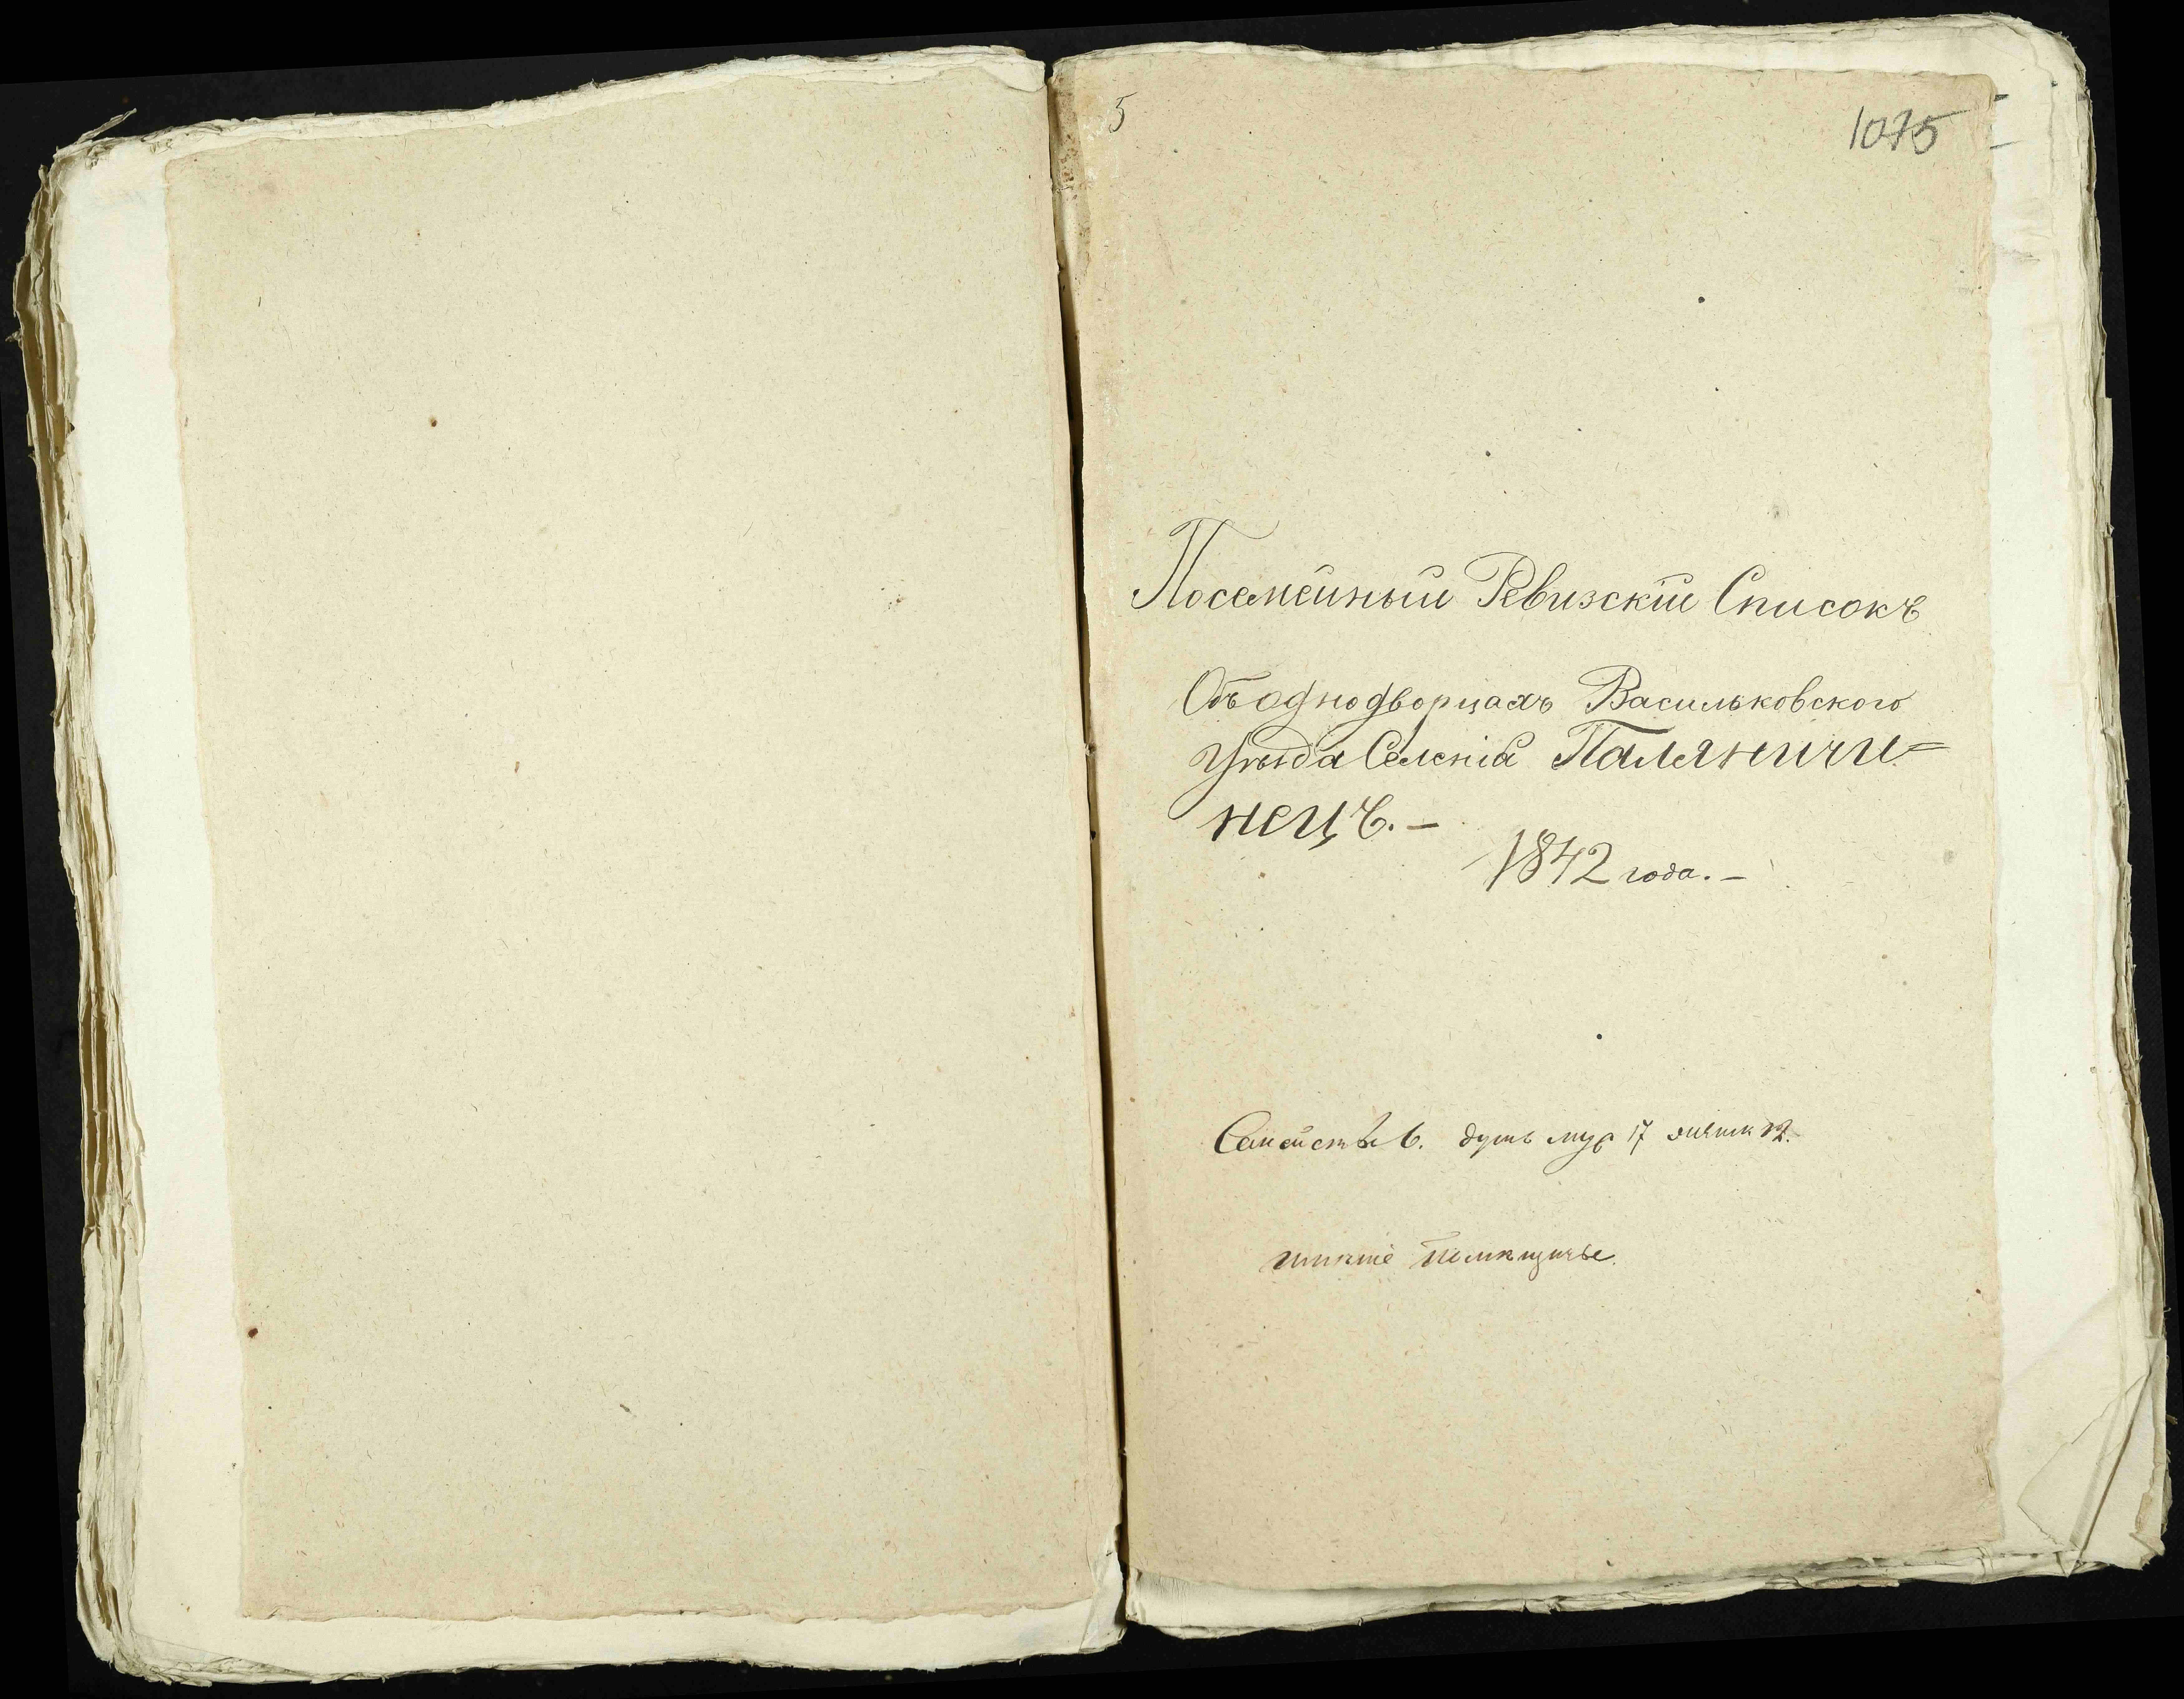 5
1075
Посемейный Ревизскій Списокъ
Объ однодворцахъ Васильковского
Уѣзда Селенія Паляничи=
нецъ. –
1842 года. –
Семействъ 6. душъ муж 17 женск 12.
имѣніе Помѣщичье.